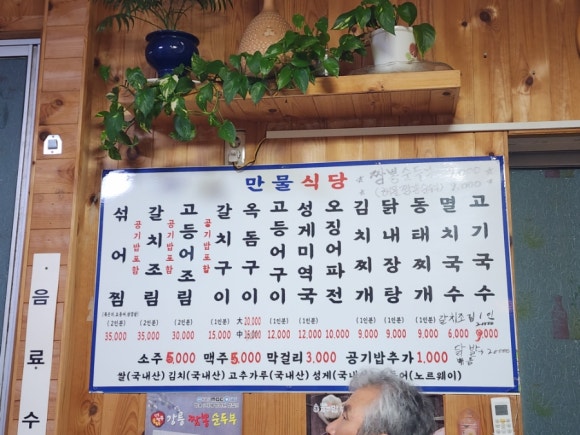 만물식당
섞어찜
갈치조림 공기밥포함
고등어조림 공기밥포함
갈치구이 공기밥포함
옥돔구이
고등어구이
성게미역국
오징어파전
김치찌개
닭내장탕
동태찌개
멸치국수
고기국수
(2인분) (2인분) (1인분) 大 20,000 (1인분) (1인분) (1인분) (1인분) (1인분)
35,000 35,000 30,000 15,000 中 16,000 12,000 12,000 10,000 9,000 9,000 9,000 6,000 9000
소주 5,000 맥주 5,000 막걸리 3,000 공기밥추가 1,000
쌀(국내산) 김치(국내산) 고추가루(국내산) 성게(국내 어(노르웨이)
음료수
강릉 짬뽕 순두부